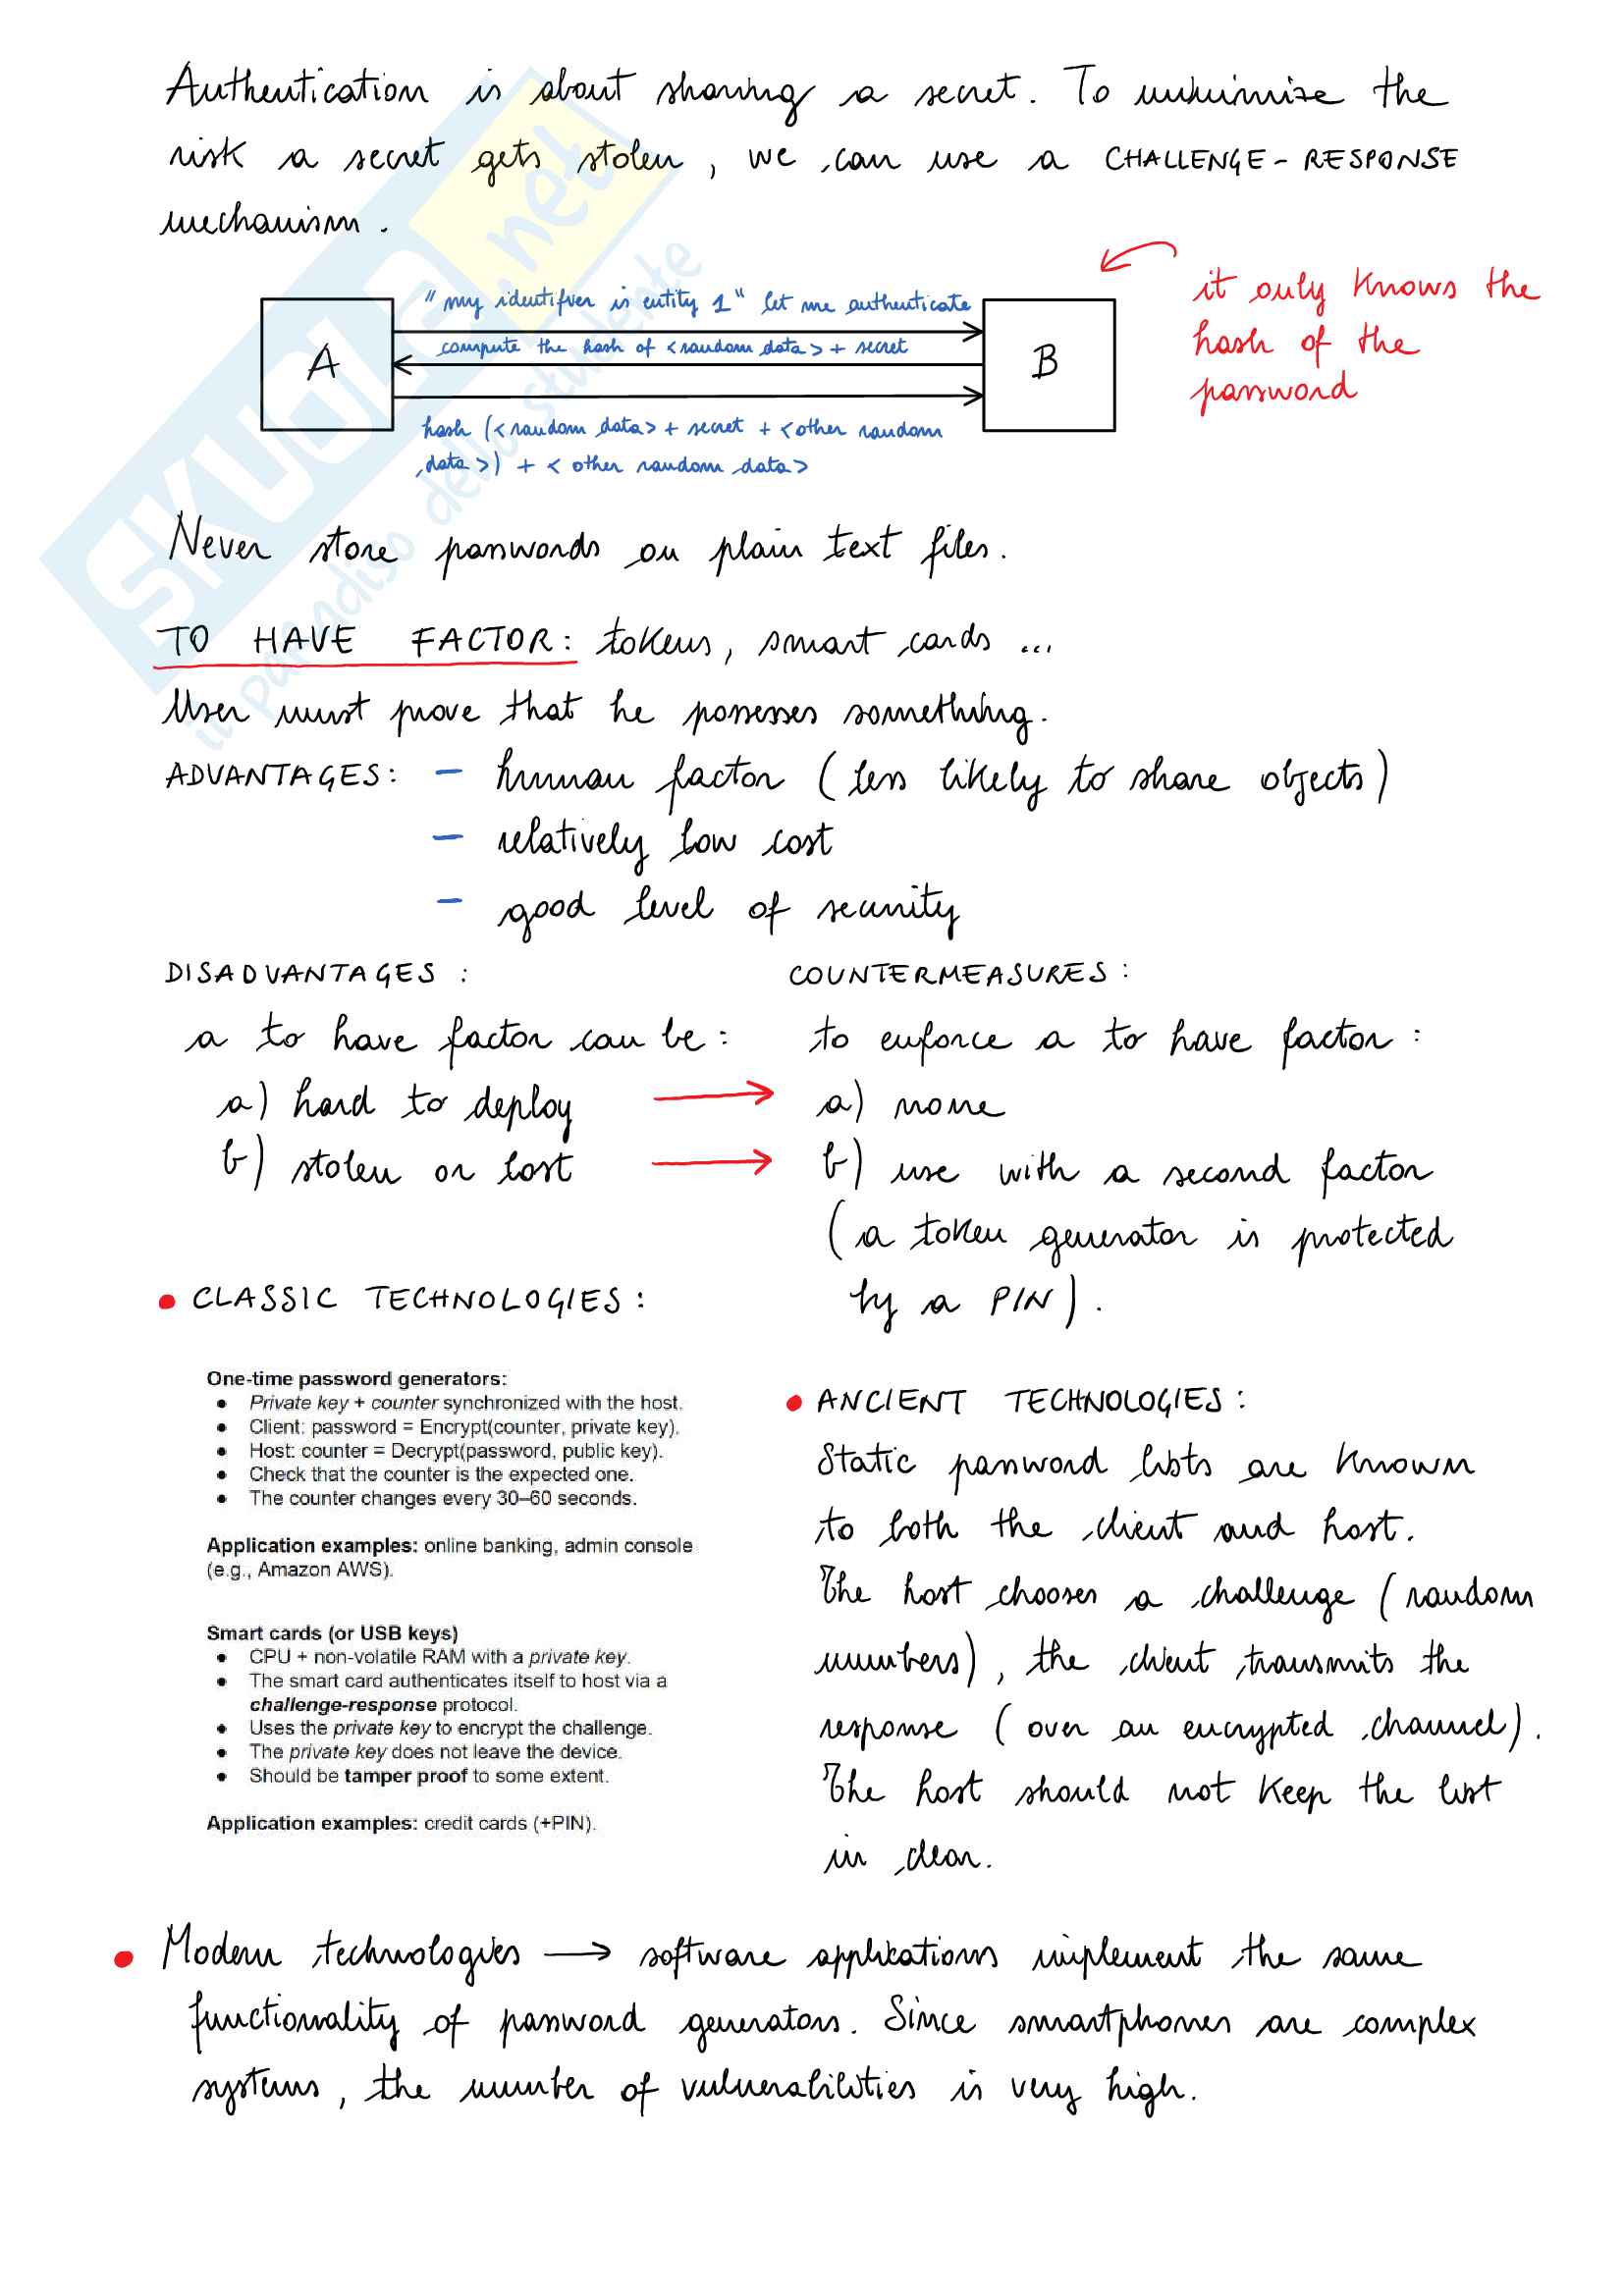 Authentication is about sharing a secret. To minimize the
risk a secret gets stolen, we can use a CHALLENGE-RESPONSE
mechanism.
"my identifier is entity 1" let me authenticate
compute the hash of <random data> + secret
A
B
hash (<random data> + secret + <other random
data>) + < other random data>
it only knows the
hash of the
password
Never store passwords on plain text files.
TO HAVE FACTOR: tokens, smart cards ...
User must prove that he possesses something.
ADVANTAGES: - human factor (less likely to share objects)
- relatively low cost
- good level of security
DISADVANTAGES :
a to have factor can be :
a) hard to deploy
b) stolen or lost
COUNTERMEASURES :
to enforce a to have factor :
a) none
b) use with a second factor
(a token generator is protected
by a PIN).
• CLASSIC TECHNOLOGIES :
One-time password generators:
● Private key + counter synchronized with the host.
● Client: password = Encrypt(counter, private key).
● Host: counter = Decrypt(password, public key).
● Check that the counter is the expected one.
● The counter changes every 30–60 seconds.
Application examples: online banking, admin console
(e.g., Amazon AWS).
Smart cards (or USB keys)
● CPU + non-volatile RAM with a private key.
● The smart card authenticates itself to host via a
challenge-response protocol.
● Uses the private key to encrypt the challenge.
● The private key does not leave the device.
● Should be tamper proof to some extent.
Application examples: credit cards (+PIN).
• ANCIENT TECHNOLOGIES :
Static password lists are known
to both the client and host.
The host chooses a challenge (random
numbers), the client transmits the
response (over an encrypted channel).
The host should not keep the list
in clear.
• Modern technologies → software applications implement the same
functionality of password generators. Since smartphones are complex
systems, the number of vulnerabilities is very high.
SKUOLA.net
il paradiso dello studente